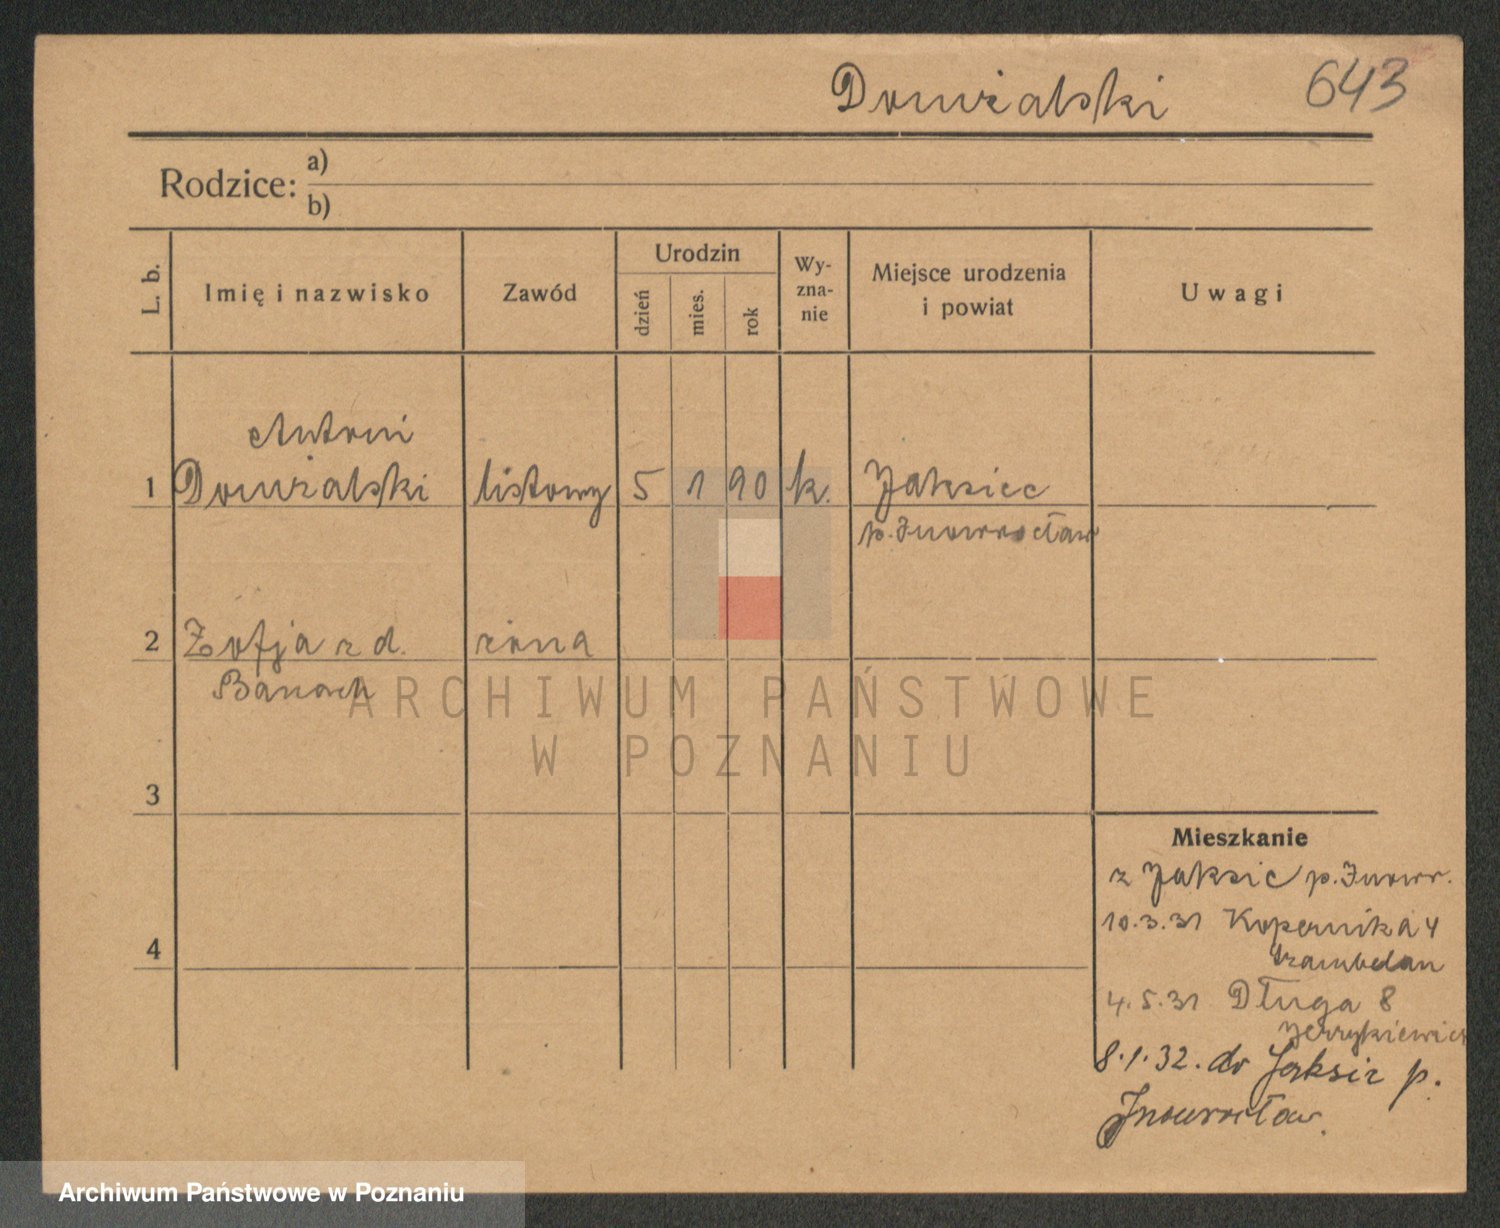 Domżalski 643
Rodzice: a)
b)
L. b.
Imię i nazwisko
Zawód
Urodzin
dzień
mies.
rok
Wy-
zna-
nie
Miejsce urodzenia
i powiat
Uwagi
Antoni
1 Domżalski listowy 5 1 90 k. Jaksice
p. Inowrocław
2 Zofja z d. żona
Banach
3
4
Mieszkanie
z Jaksic p. Inowr.
10.3.31 Kopernika 4
4.5.31 Długa 8
8.1.32. do Jaksic p.
Inowrocław.
ARCHIWUM PAŃSTWOWE
W POZNANIU
Archiwum Państwowe w Poznaniu